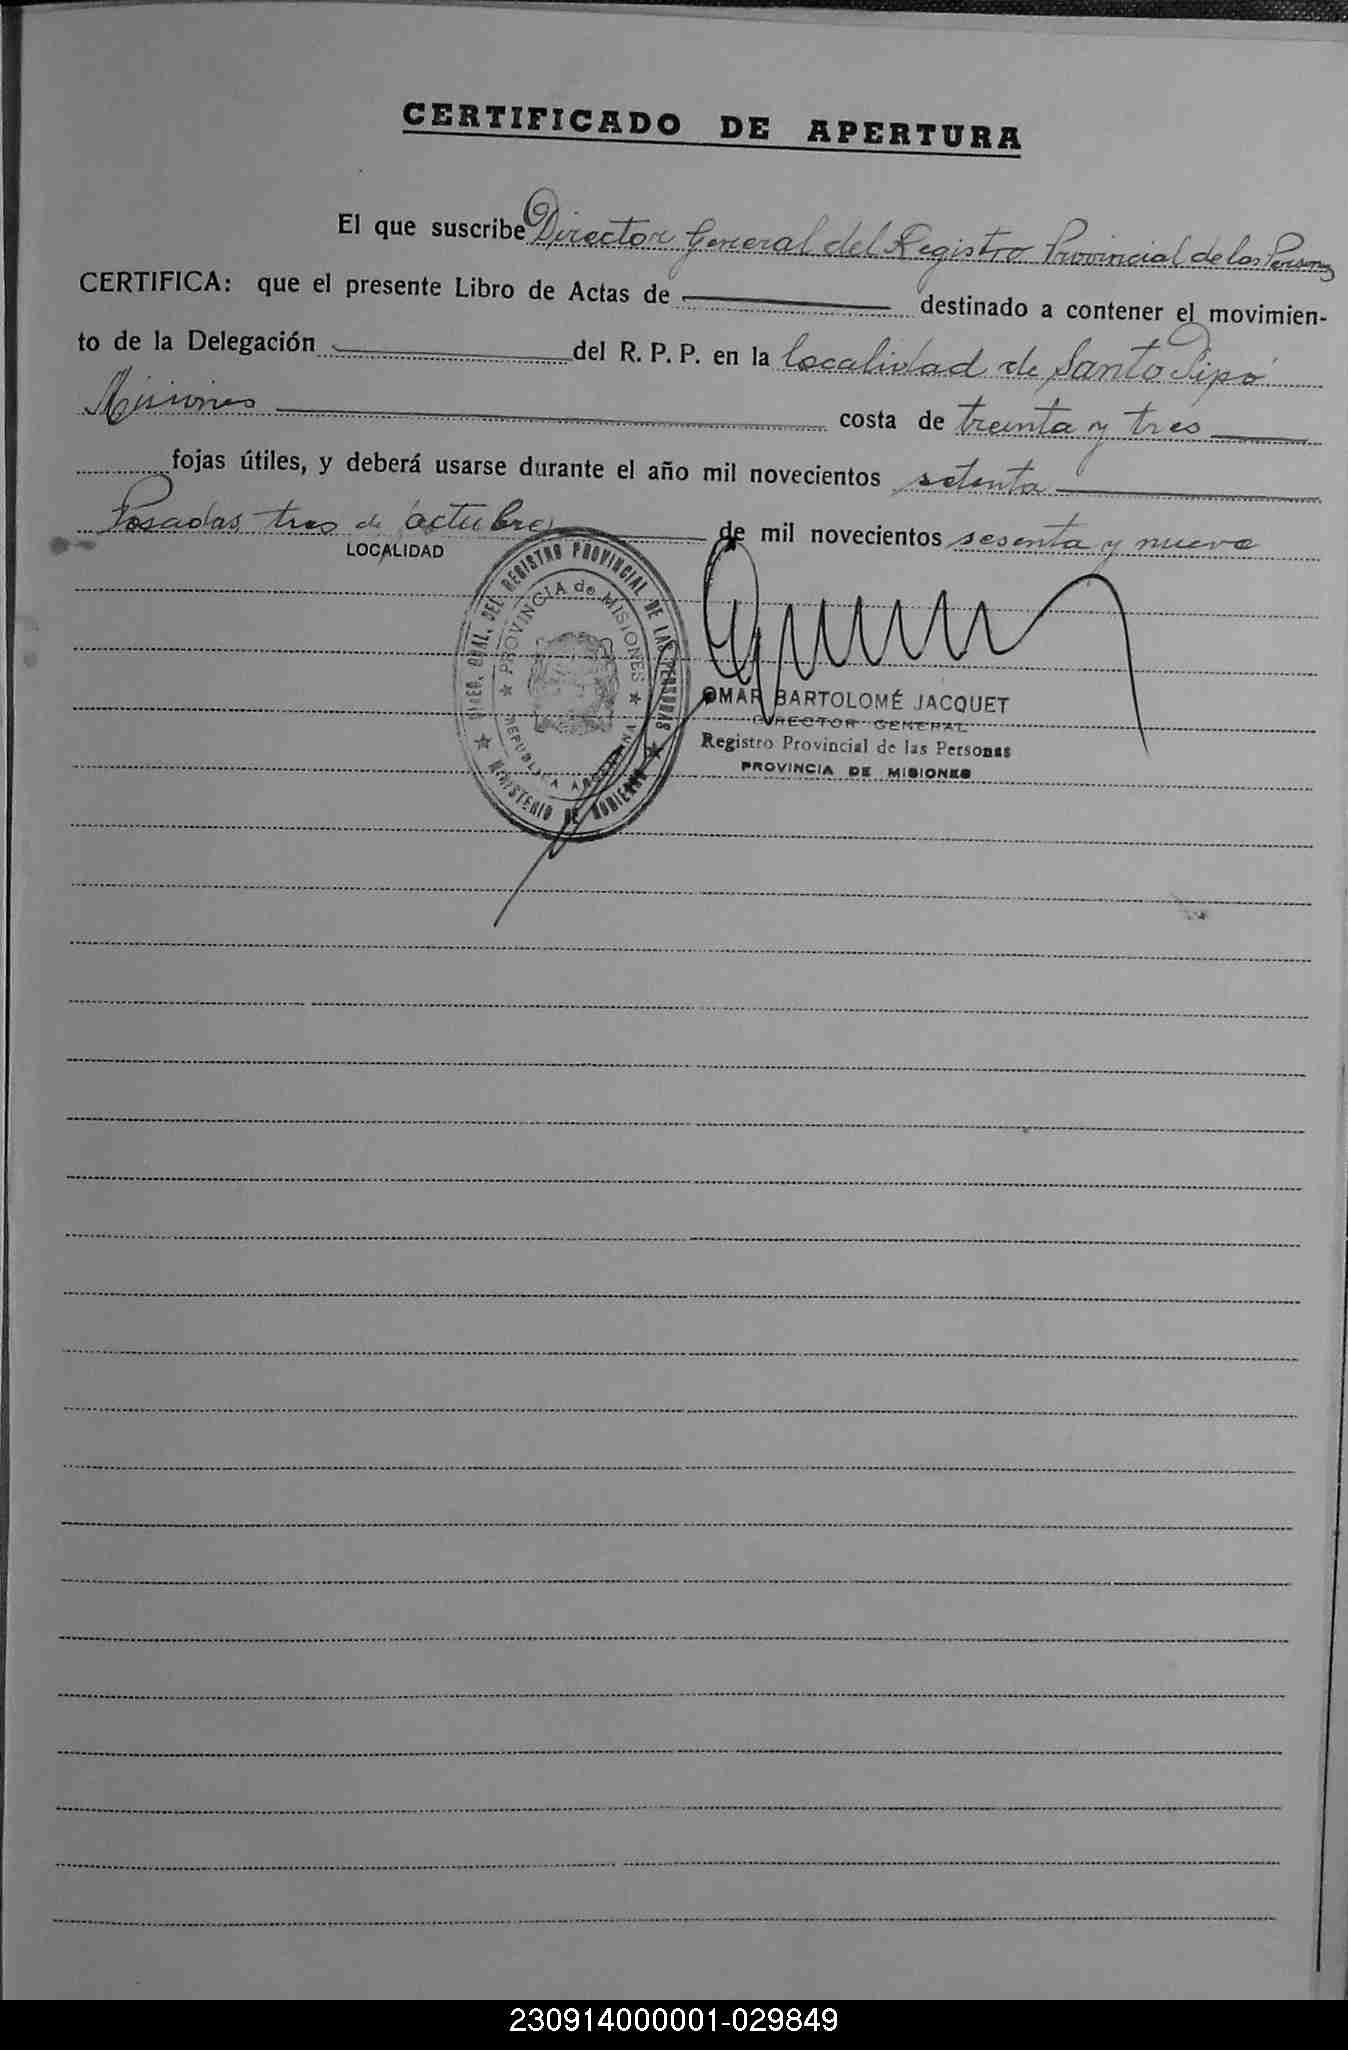 CERTIFICADO DE APERTURA
El que suscribe Director General del Registro Provincial de las Personas
CERTIFICA: que el presente Libro de Actas de destinado a contener el movimien-
to de la Delegación del R. P. P. en la localidad de Santo Pipó
Misiones costa de treinta y tres
fojas útiles, y deberá usarse durante el año mil novecientos setenta
Posadas tres de octubre de mil novecientos sesenta y nueve
LOCALIDAD
DIREC. GRAL. DEL REGISTRO PROVINCIAL DE LAS PERSONAS
PROVINCIA de MISIONES
REPUBLICA ARGENTINA
MINISTERIO DE GOBIERNO
OMAR BARTOLOMÉ JACQUET
DIRECTOR GENERAL
Registro Provincial de las Personas
PROVINCIA DE MISIONES
230914000001-029849